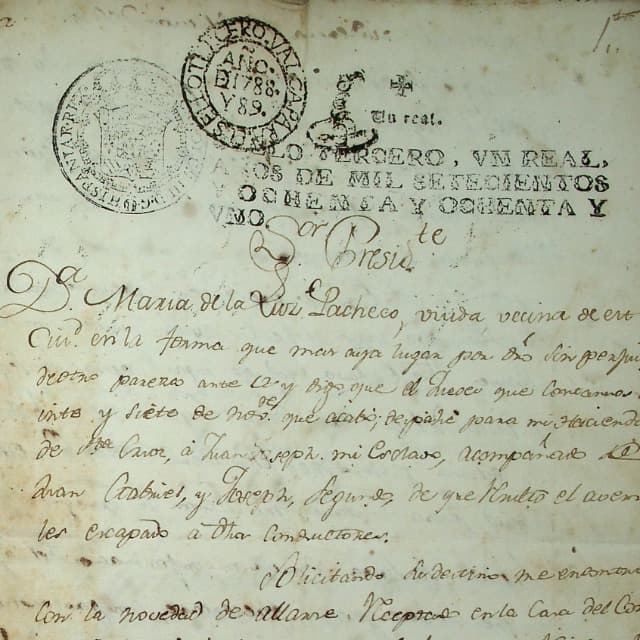 SELLO TERCERO, VN REAL
AÑO.
D 1788.
Y 89.
Un real.
LO TERCERO, VN REAL,
AÑOS DE MIL SETECIENTOS
Y OCHENTA Y OCHENTA Y
VNO.
Sor Presidte
Da. Maria de la Luz Pacheco, viuda vecina de est
Ciud. en la forma que mas aya lugar por dro sin perjui
de otro parezco ante y digo que el Jueves que contamos
inte y siete de que acabó, despaché para mi Hacienda
de Cruz, à Juan Joseph mi Esclavo, acompañado
Juan Gabriel, y Joseph Segundo, de que resultó el aver
les escapado à dhos conductores.
Solicitando su destino me encontra
con la novedad de allarse en la Casa del Con